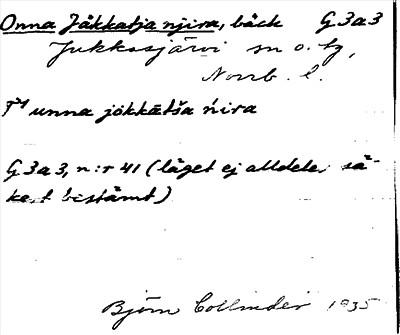 Onna Jåkkatja njira, bäck G 3 a 3
Jukkasjärvi sn o. tg,
Norrb. l.
unna jokkatša ńira
G 3 a 3, n:r 41 (läget ej alldeles sä-
kert bestämt)
Björn Collinder 1935